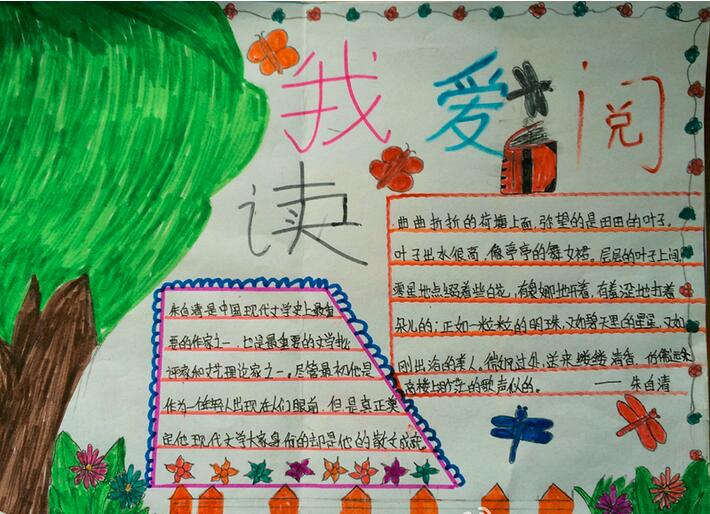 我爱阅
读
曲曲折折的荷塘上面,弥望的是田田的叶子.
叶子出水很高,像亭亭的舞女裙。层层的叶子上间
零星地点缀着些白花,有袅娜地开着,有羞涩地打着
朵儿的;正如一粒粒的明珠,又如碧天里的星星,又如
刚出浴的美人。微风过处,送来缕缕清香,仿佛远处
高楼上的渺茫的歌声似的。——朱自清
朱自清是中国现代文学史上最重
要的作家之一,也是最重要的文学批
评家和文艺理论家之一。尽管最初他是
作为一位诗人出现在人们眼前,但是真正奠
定他现代文学大家身份的却是他的散文成就